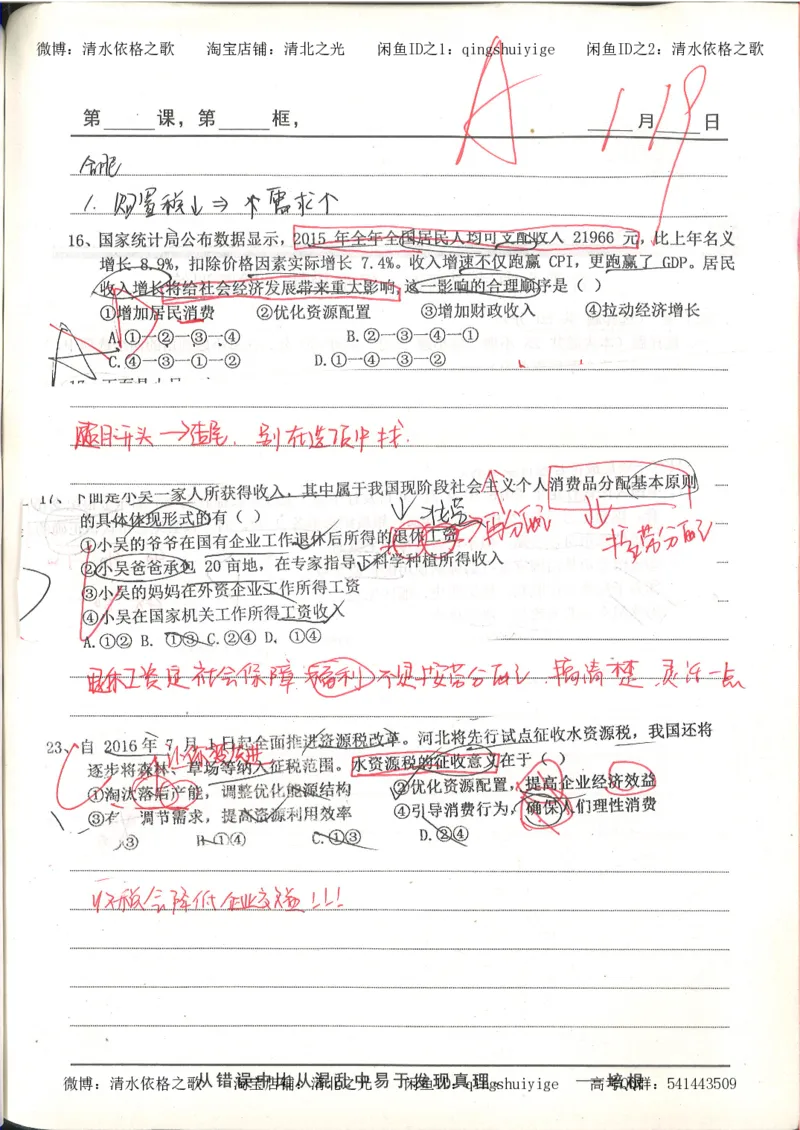 微博：清水依格之歌 淘宝店铺：清北之光 闲鱼ID之1：qingshuiyige 闲鱼ID之2：清水依格之歌
A 1 19
第 课，第 框， 月 日
1. 购置税↓⇒ 需求个
16、国家统计局公布数据显示，2015 年全年全国居民人均可支配收入 21966 元，比上年名义
增长 8.9%，扣除价格因素实际增长 7.4%。收入增速不仅跑赢 CPI，更跑赢了 GDP。居民
收入增长将给社会经济发展带来重大影响，这一影响的合理顺序是（ ）
①增加居民消费 ②优化资源配置 ③增加财政收入 ④拉动经济增长
A.①—②—③—④ B.②—③—④—①
C.④—③—①—② D.①—④—③—②
题目开头→结尾，别在选项中找.
17、下面是小吴一家人所获得收入，其中属于我国现阶段社会主义个人消费品分配基本原则
的具体体现形式的有（ ）
①小吴的爷爷在国有企业工作退休后所得的退休工资 →再分配 按劳分配
②小吴爸爸承包 20 亩地，在专家指导下科学种植所得收入
③小吴的妈妈在外资企业工作所得工资
④小吴在国家机关工作所得工资收入
A.①② B. ①③ C.②④ D. ①④
退休工资是社会保障（福利）不是按劳分配，搞清楚 灵活一点
23、自 2016 年 7 月 1 日起全面推进资源税改革。河北将先行试点征收水资源税，我国还将
逐步将森林、草场等纳入征税范围。水资源税的征收意义在于（ ）
①淘汰落后产能，调整优化能源结构 ②优化资源配置，提高企业经济效益
③ 调节需求，提高资源利用效率 ④引导消费行为，确保人们理性消费
③ B.①④ C.①③ D.②④
税会降低企业效益!!!
微博：清水依格之歌 淘宝店铺：清北之光 闲鱼ID之1：qingshuiyige 高考QQ群：541443509
从错误中比从混乱中易于发现真理。 ——培根